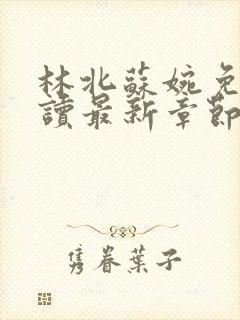 林北蘇婉免
讀最新章節
雋眷葉子